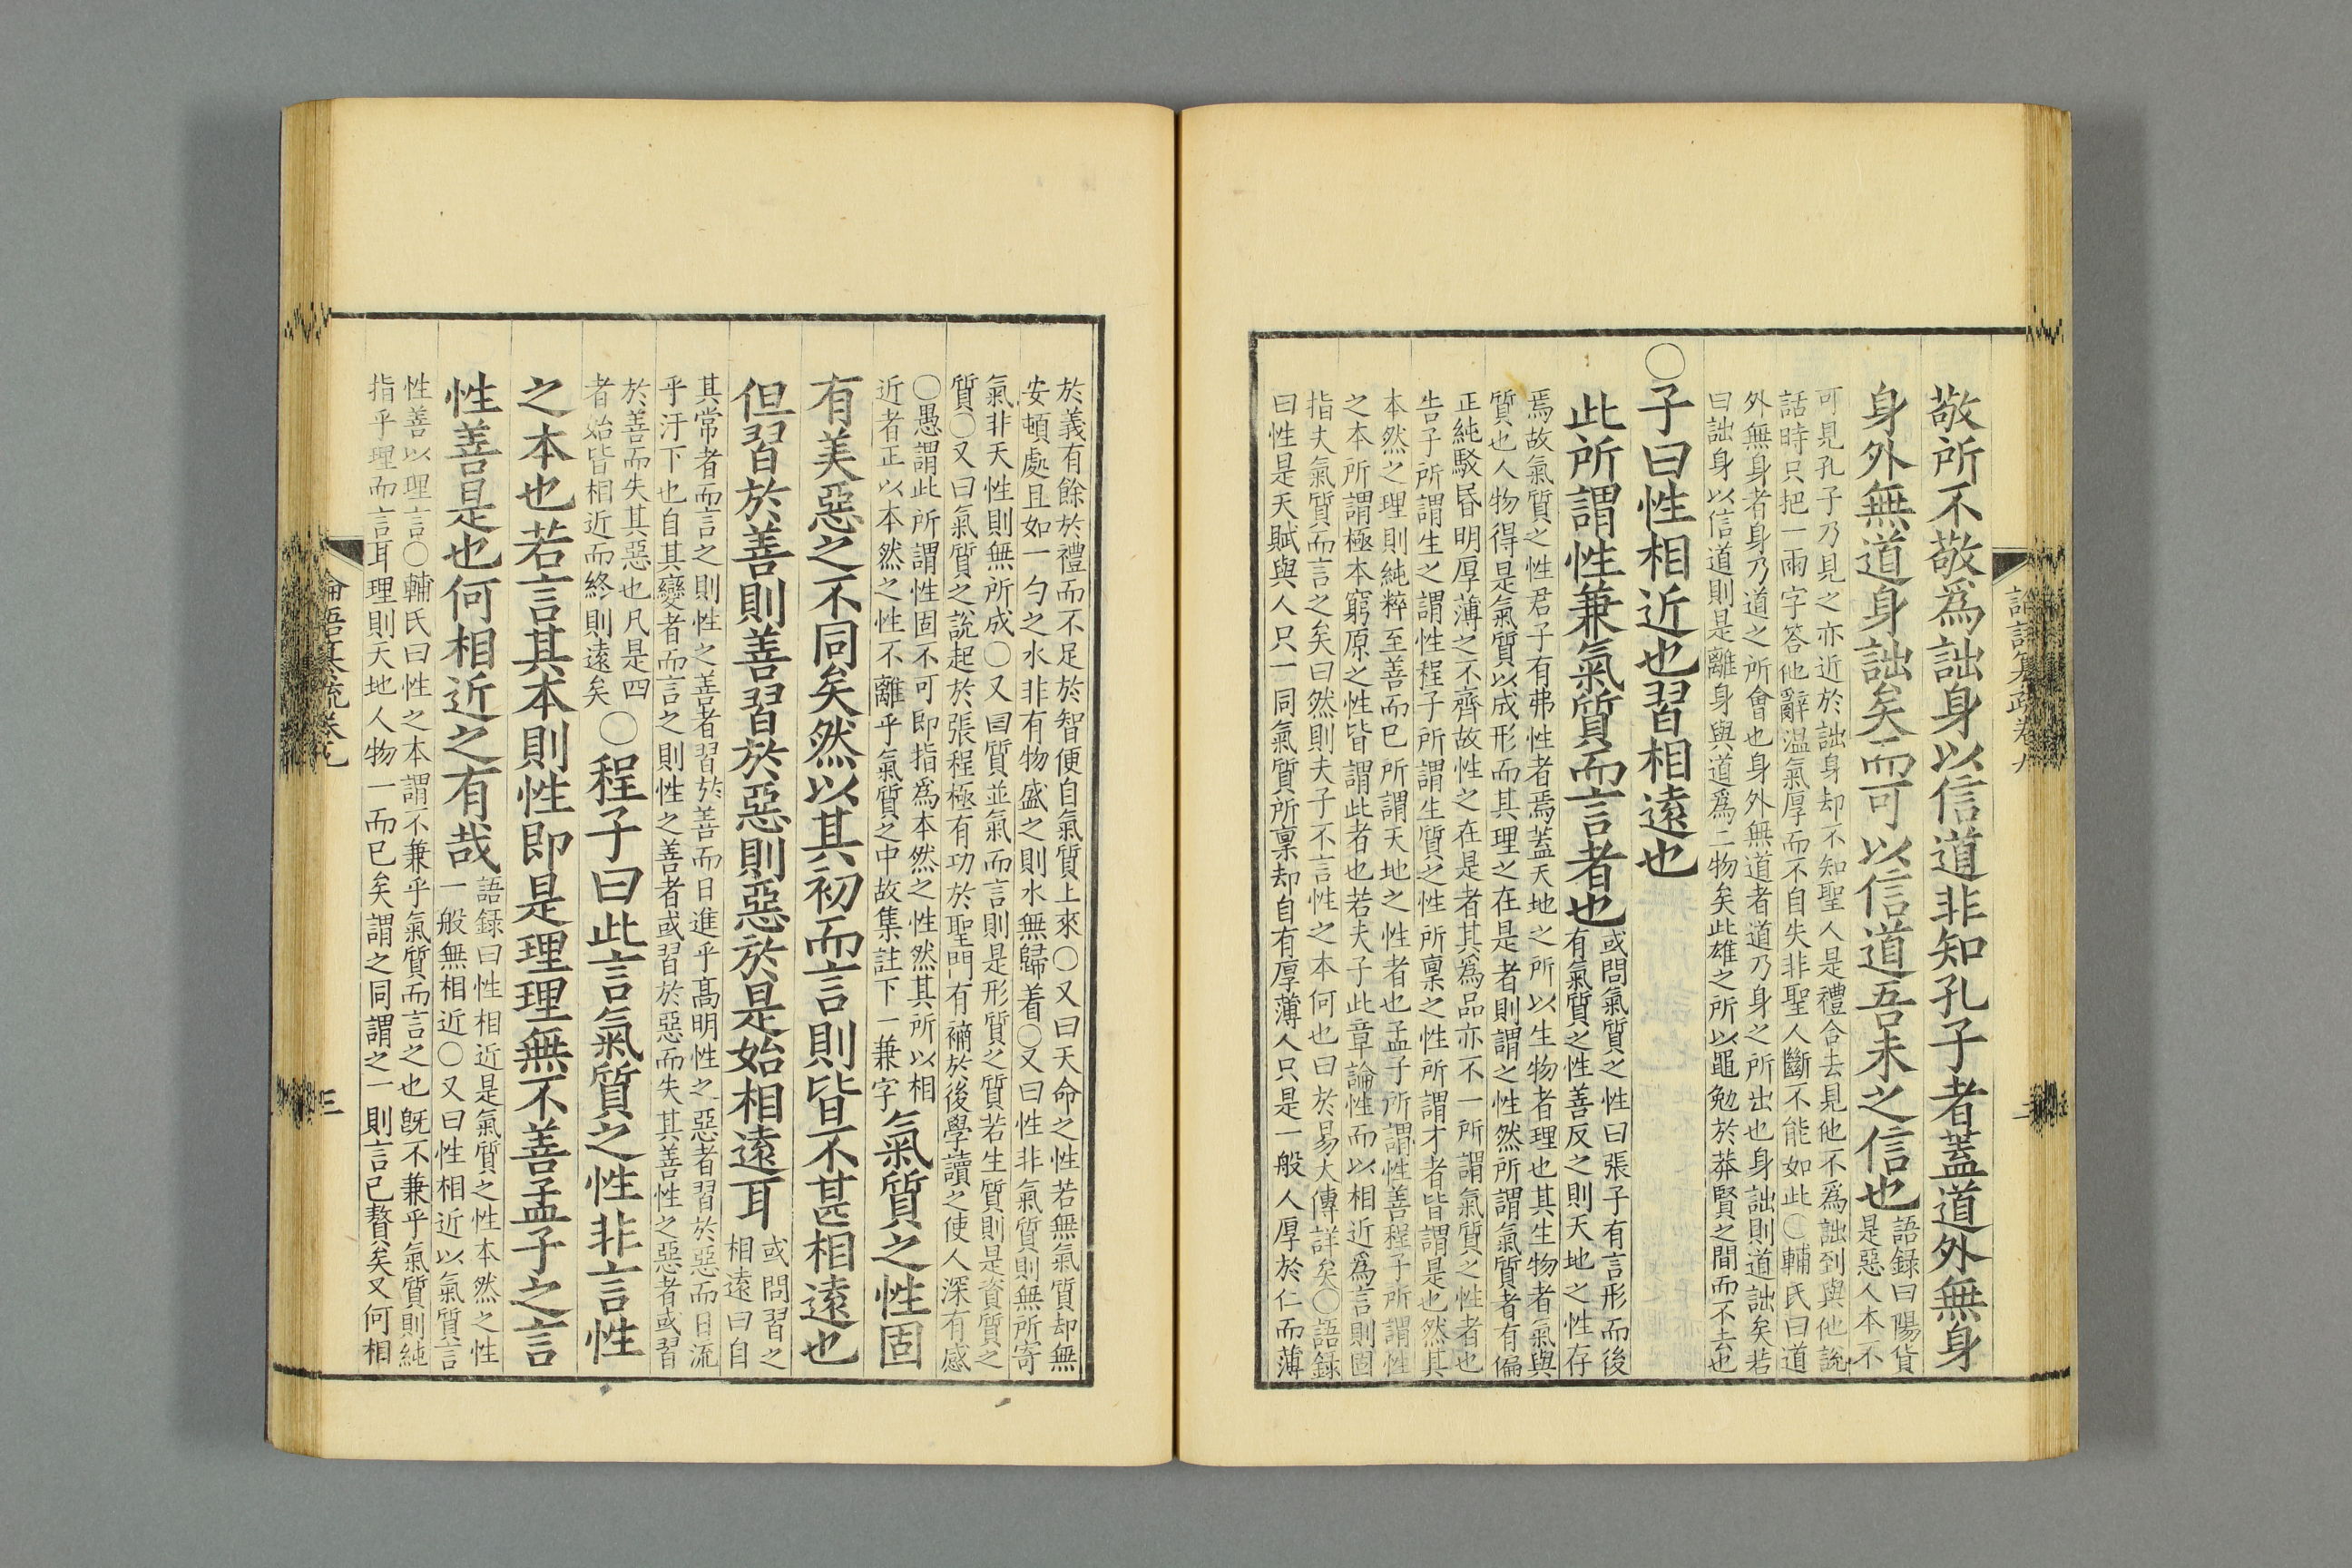 敬所不敬爲詘身以信道非知孔子者蓋道外無身
身外無道身詘矣而可以信道吾未之信也
語錄曰陽貨
是惡人本不
可見孔子乃見之亦近於詘身却不知聖人是禮合去見他不爲詘到與他說
話時只把一兩字答他辭温氣厚而不自失非聖人斷不能如此○輔氏曰道
外無身者身乃道之所會也身外無道者道乃身之所出也身詘則道詘矣若
曰詘身以信道則是離身與道爲二物矣此雄之所以黽勉於莽賢之間而不去也
○子曰性相近也習相遠也
此所謂性兼氣質而言者也
或問氣質之性曰張子有言形而後
有氣質之性善反之則天地之性存
焉故氣質之性君子有弗性者焉蓋天地之所以生物者理也其生物者氣與
質也人物得是氣質以成形而其理之在是者則謂之性然所謂氣質者有偏
正純駁昏明厚薄之不齊故性之在是者其爲品亦不一所謂氣質之性者也
告子所謂生之謂性程子所謂生質之性所稟之性所謂才者皆謂是也然其
本然之理則純粹至善而已所謂天地之性者也孟子所謂性善程子所謂性
之本所謂極本窮原之性皆謂此者也若夫子此章論性而以相近爲言則固
指夫氣質而言之矣曰然則夫子不言性之本何也曰於易大傳詳矣○語錄
曰性是天賦與人只一同氣質所稟却自有厚薄人只是一般人厚於仁而薄
論語纂疏卷九
於義有餘於禮而不足於智便自氣質上來○又曰天命之性若無氣質却無
安頓處且如一勺之水非有物盛之則水無歸着○又曰性非氣質則無所寄
氣非天性則無所成○又曰質並氣而言則是形質之質若生質則是資質之
質○又曰氣質之說起於張程極有功於聖門有補於後學讀之使人深有感
○愚謂此所謂性固不可即指爲本然之性然其所以相
近者正以本然之性不離乎氣質之中故集註下一兼字
氣質之性固
有美惡之不同矣然以其初而言則皆不甚相遠也
但習於善則善習於惡則惡於是始相遠耳
或問習之
相遠曰自
其常者而言之則性之善者習於善而日進乎高明性之惡者習於惡而日流
乎汙下也自其變者而言之則性之善者或習於惡而失其善性之惡者或習
於善而失其惡也凡是四
者始皆相近而終則遠矣
○程子曰此言氣質之性非言性
之本也若言其本則性即是理理無不善孟子之言
性善是也何相近之有哉
語錄曰性相近是氣質之性本然之性
一般無相近○又曰性相近以氣質言
性善以理言○輔氏曰性之本謂不兼乎氣質而言之也既不兼乎氣質則純
指乎理而言耳理則天地人物一而已矣謂之同謂之一則言已贅矣又何相
論語纂疏卷九
三